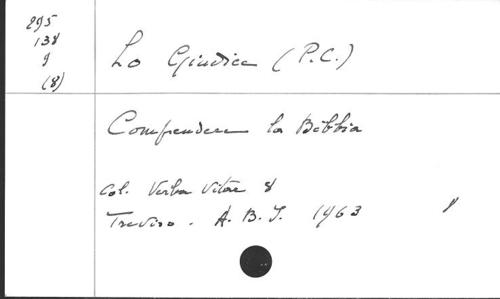 295
138
9
(8)
Lo Giudice (P.C.)
Comprendere la Bibbia
Col. Verba Vitae 8
Treviso. A.B.I. 1963